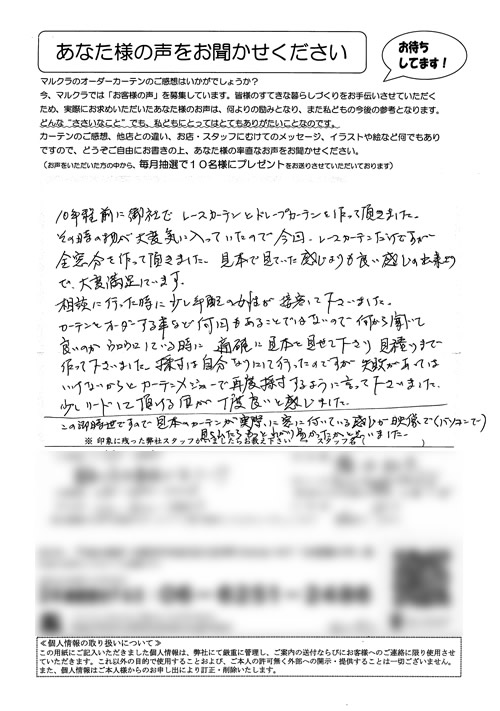 あなた様の声をお聞かせください
お待ち
してます！
マルクラのオーダーカーテンのご感想はいかがでしょうか？
今、マルクラでは「お客様の声」を募集しています。皆様のすてきな暮らしづくりをお手伝いさせていただく
ため、実際にお求めいただいたあなた様のお声は、何よりの励みとなり、また私どもの今後の参考となります。
どんな“ささいなこと”でも、私どもにとってはとてもありがたいことなのです。
カーテンのご感想、他店との違い、お店・スタッフにむけてのメッセージ、イラストや絵など何でもあり
ですので、どうぞご自由にお書きの上、あなた様の率直なお声をお聞かせください。
（お声をいただいた方の中から、毎月抽選で１０名様にプレゼントをお送りさせていただいております）
10年程前に御社で レースカーテンとドレープカーテンを作って頂きました。
その時の物が大変気に入っていたので今回、レースカーテンだけですが
全窓分を作って頂きました。見本で見ていた感じよりも良い感じの出来上り
で、大変満足しています。
相談に行った時に少し年配の女性が接客して下さいました。
カーテンをオーダーする事など何回もあることではないので何から聞いて
良いのかウロウロしている時に 適確に見本を見せて下さり 見積りまで
作って下さいました。採寸は自分なりにして行ったのですが 失敗があっては
いけないからとカーテンメジャーで再度採寸するように言って下さいました。
少しリードして頂ける所が丁度良いと感じました。
この御時世ですので見本のカーテンが実際に窓に付いている感じが映像で(パソコンで)
見られたらもっとわかり易かったかと思いました。
※ 印象に残った弊社スタッフがいましたらお教え下さい スタッフ名（ ）
06-6251-2486
≪個人情報の取り扱いについて≫
この用紙にご記入いただきました個人情報は、弊社にて厳重に管理し、ご案内の送付ならびにお客様へのご連絡に限り使用させ
ていただきます。これ以外の目的で使用することおよび、ご本人の許可無く外部への開示・提供することは一切ございません。
また、個人情報はご本人様からのお申し出により訂正・削除いたします。